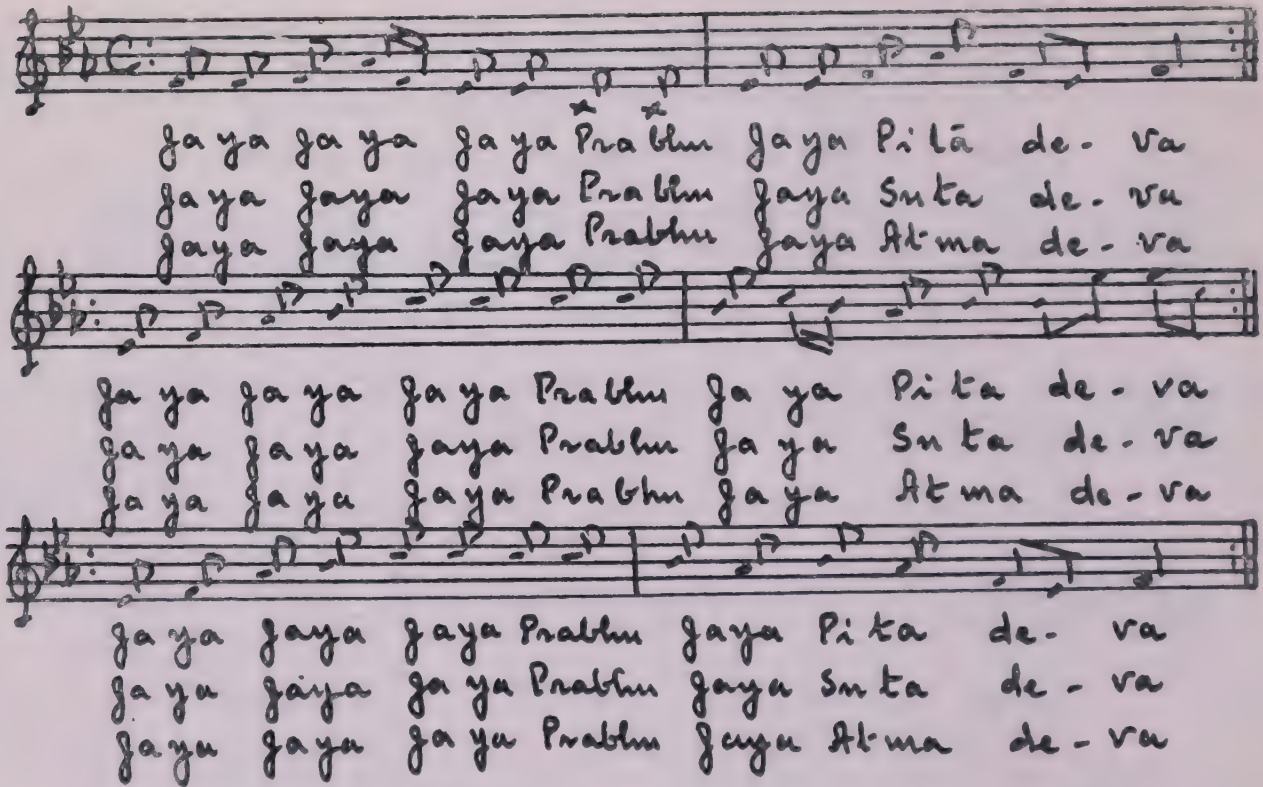 Ja ya Ja ya Ja ya Pra bhu Jaya Pi tā de - va
Jaya Jaya Jaya Prabhu Jaya Suta de - va
Jaya Jaya Jaya Prabhu Jaya Atma de - va
Ja ya Ja ya Ja ya Prabhu Ja ya Pi ta de - va
Ja ya Ja ya Jaya Prabhu Ja ya Su ta de - va
Ja ya Ja ya Jaya Prabhu Ja ya At ma de - va
Ja ya Jaya Jaya Prabhu Jaya Pi ta de - va
Ja ya Jaya Ja ya Prabhu Jaya Su ta de - va
Jaya Jaya Ja ya Prabhu Jaya At ma de - va